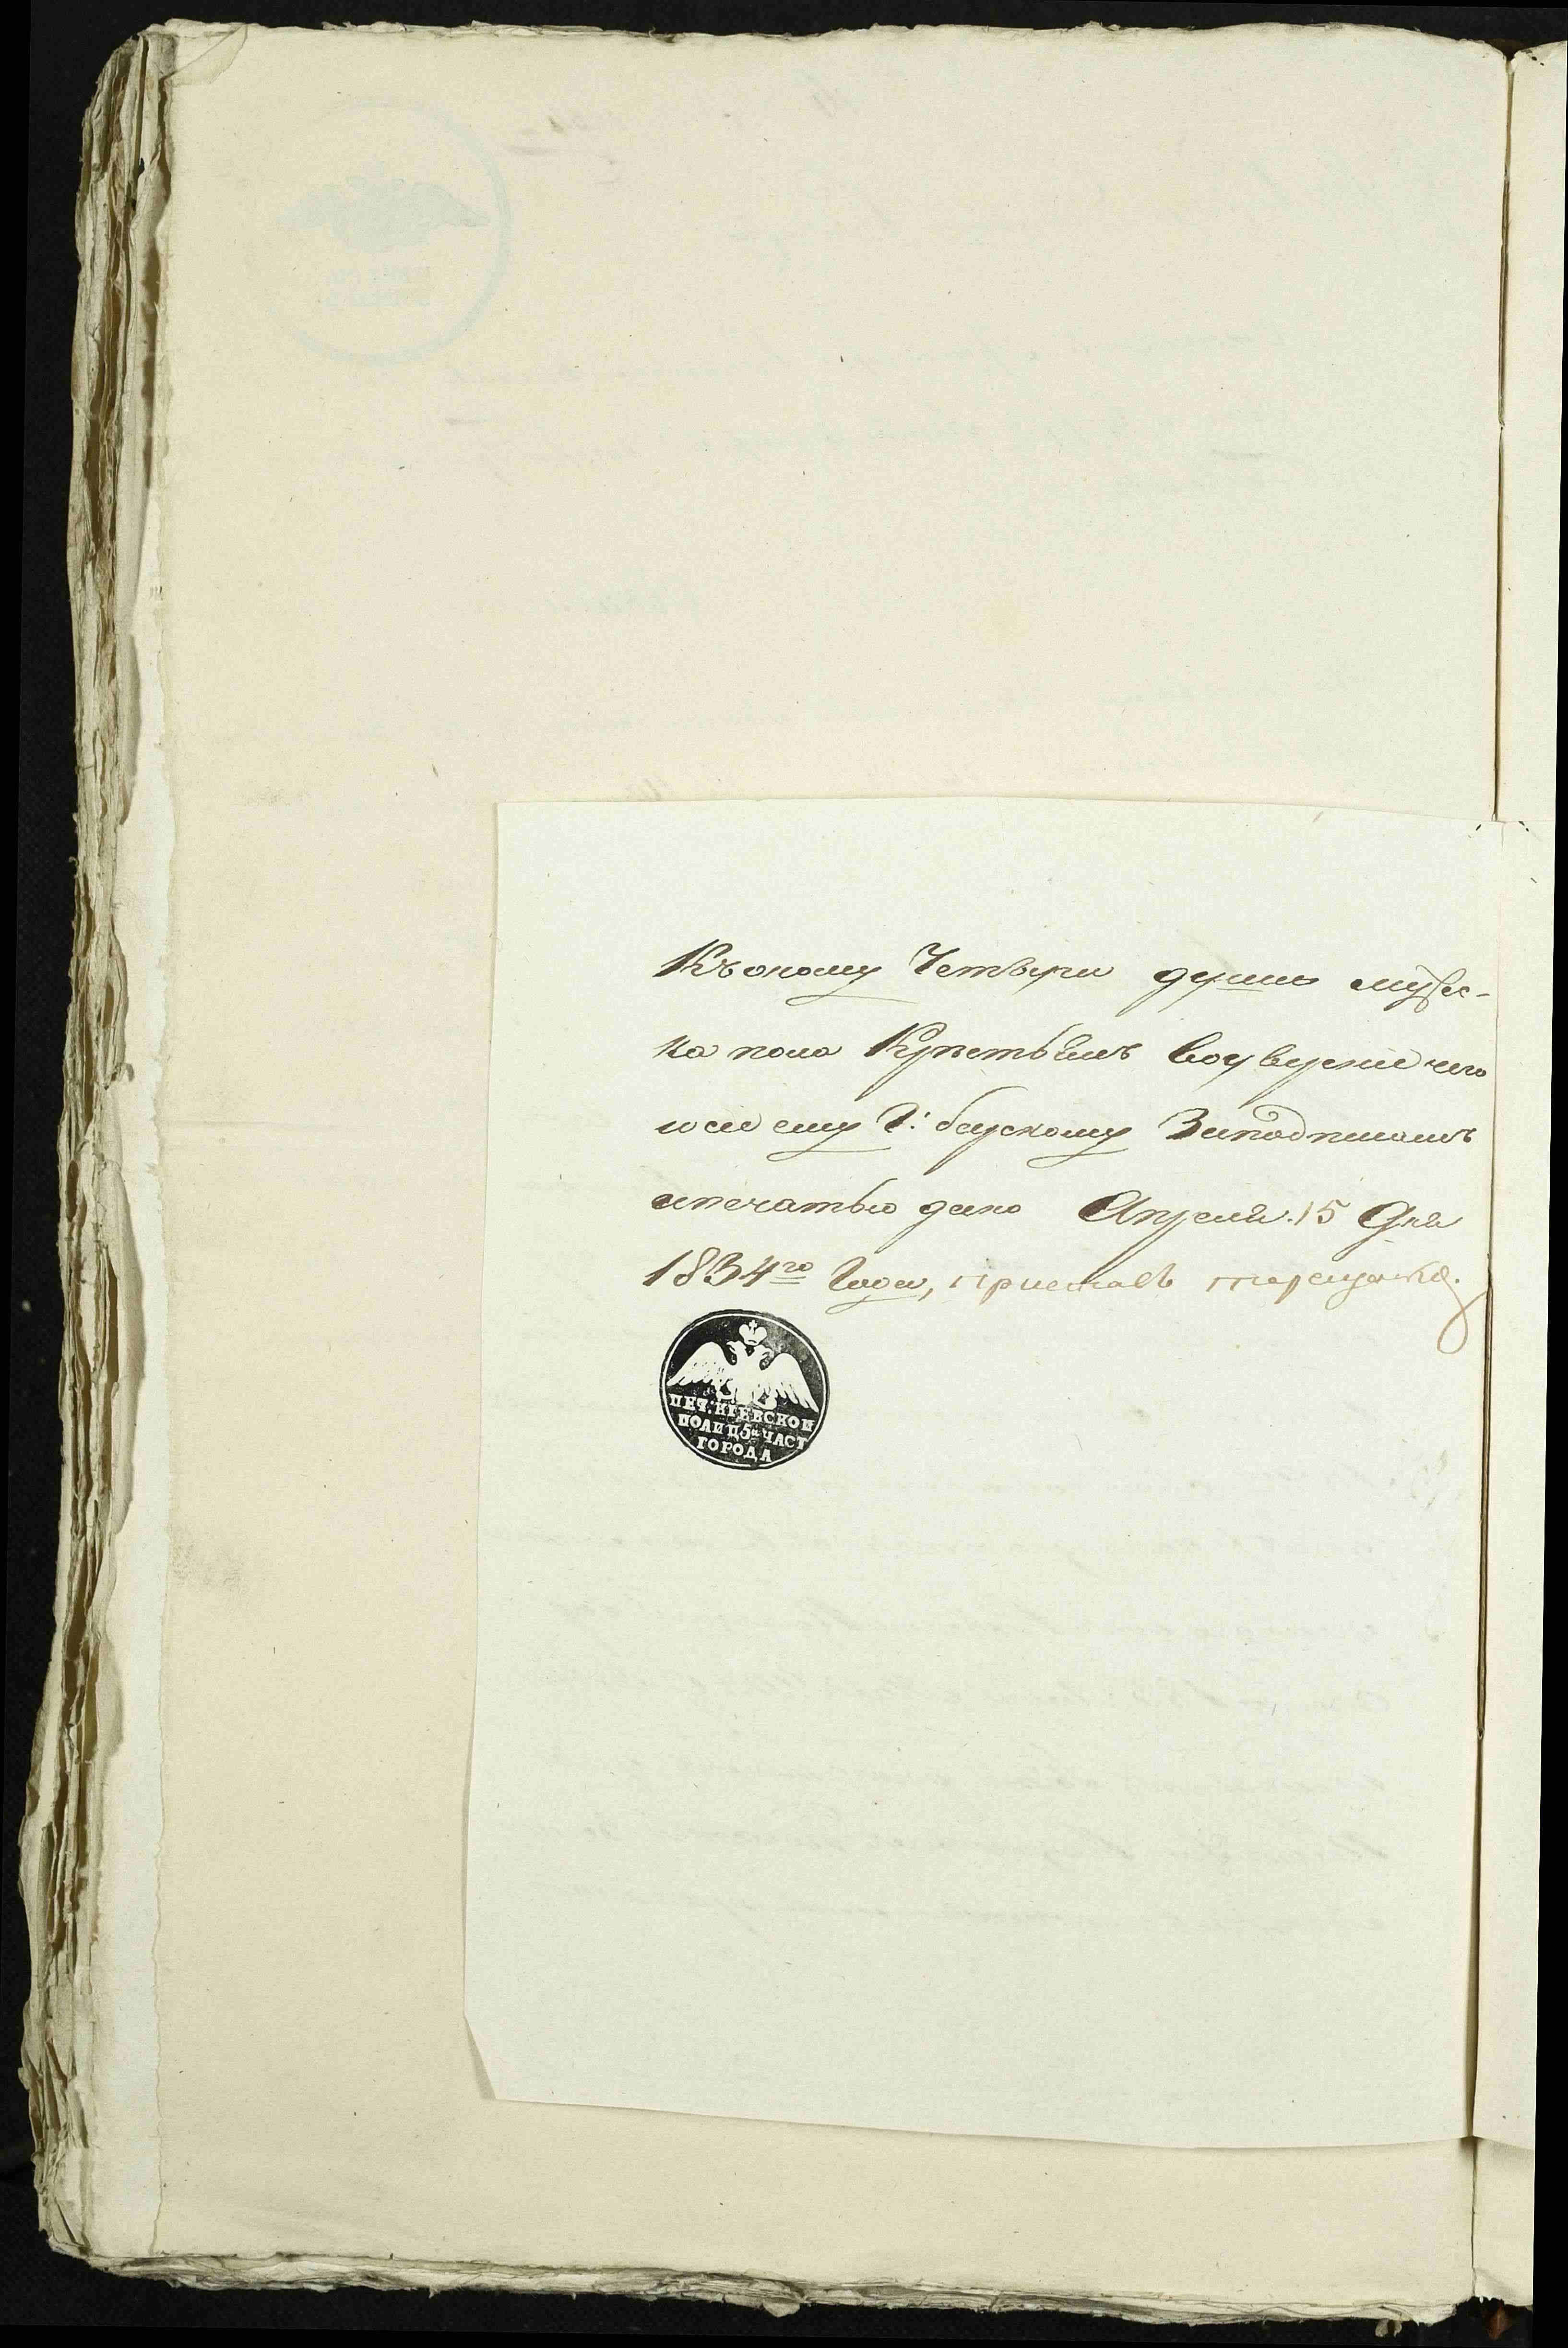 Къ оному Четыри души мужс-
ка пола Крестьянъ воуверение чего
и сие ему Г: баускому Заподписомъ
ипечатью дано Апреля. 15 Дня
1834го Года, приставъ
ПЕЧ. КІЕВСКОЙ
ПОЛИЦ 5й ЧАСТ
ГОРОДА